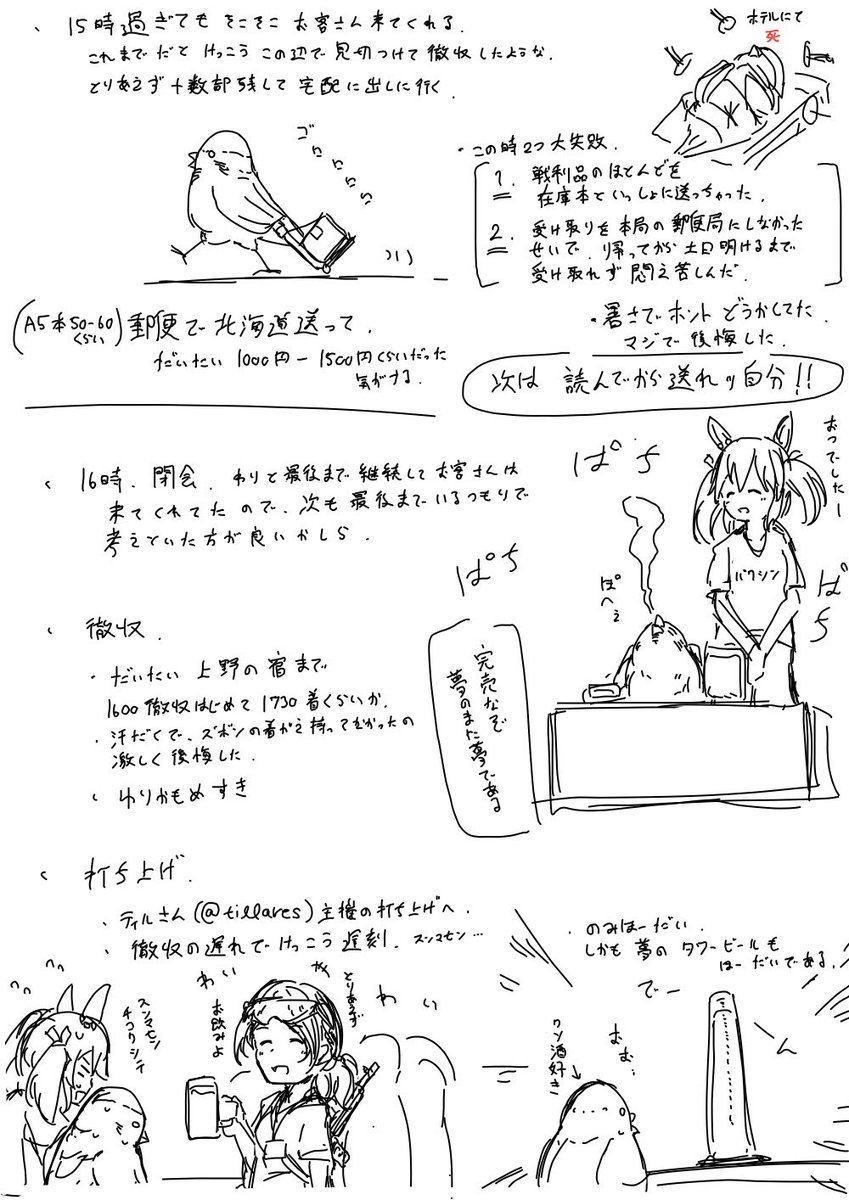 、15時過ぎても そこそこ お客さん来てくれる.
これまでだと けっこう この辺で 見切つけて 撤収したような.
とりあえず 十数部 残して 宅配に出しに行く.
ホテルにて
死
ゴロロロロロ
・この時2つ大失敗.
1. 戦利品のほとんどを
在庫本といっしょに送っちゃった.
2. 受け取りを本局の郵便局にしなかった
せいで、帰ってから 土日明けるまで
受け取れず 悶え苦しんだ.
(A5本50-60くらい) 郵便で北海道送って.
だいたい 1000円ー1500円くらいだった
気がする.
・暑さでホント どうかしてた.
マジで後悔した.
次は 読んでから送れッ自分!!
、16時. 閉会. わりと最後まで継続してお客さんは
来てくれてたので、次も最後までいるつもりで
考えていた方が良いかしら.
ぱち
ぱち
ぱち
おつでしたー
ぽへぇ
バクシン
完売など
夢のまた夢である
、撤収.
・だいたい 上野の宿まで
1600撤収はじめて 1730着くらいか.
・汗だくで、ズボンの着がえ持ってこなかったの
激しく後悔した.
、ゆりかもめすき
、打ち上げ.
・ティルさん(@tillares)主催の打ち上げへ.
・撤収の遅れで けっこう遅刻. スンマセン…
スンマセン
チコクシテ
わい
わい
とりあえず
お飲みよ
・のみほーだい.
しかも 夢の タワービールも
ほーだいである.
でーん
おぉ…
ワシ酒好き